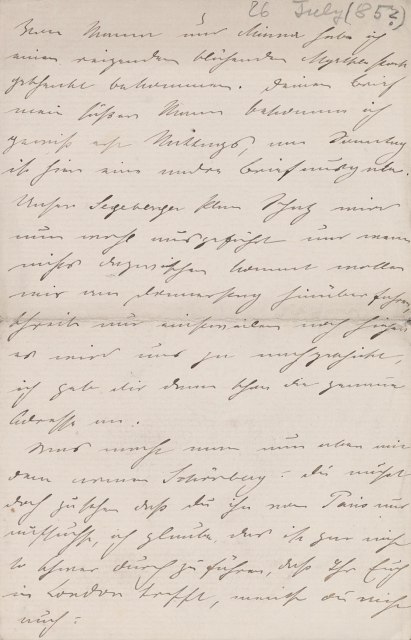 26 July (85?)
5
Von Mama und Minna habe ich
einen reizenden blühenden Myrthenstock
geschenkt bekommen. Deinen Brief
mein süßer Mann bekomme ich
gewiß erst Mittags, am Sonntag
ist hier eine andre Briefausgabe.
Unser Segeberger Plan Schatz wird
nun wohl ausgeführt und wenn
nichts dazwischen kommt wollen
wir am Donnerstag hinüber fahren
schreib nur einstweilen noch hieher
es wird uns ja nachgeschickt,
ich geb dir dann schon die genaue
Adresse an.
Was macht man nun aber mit
dem armen Schönberg - du müßt
doch zusehen daß du ihn von Paris aus
aufsuchst, ich glaube, das ist gar nicht
so schwer durchzuführen, daß Ihr Euch
in London trefft, meinst du nicht
auch?